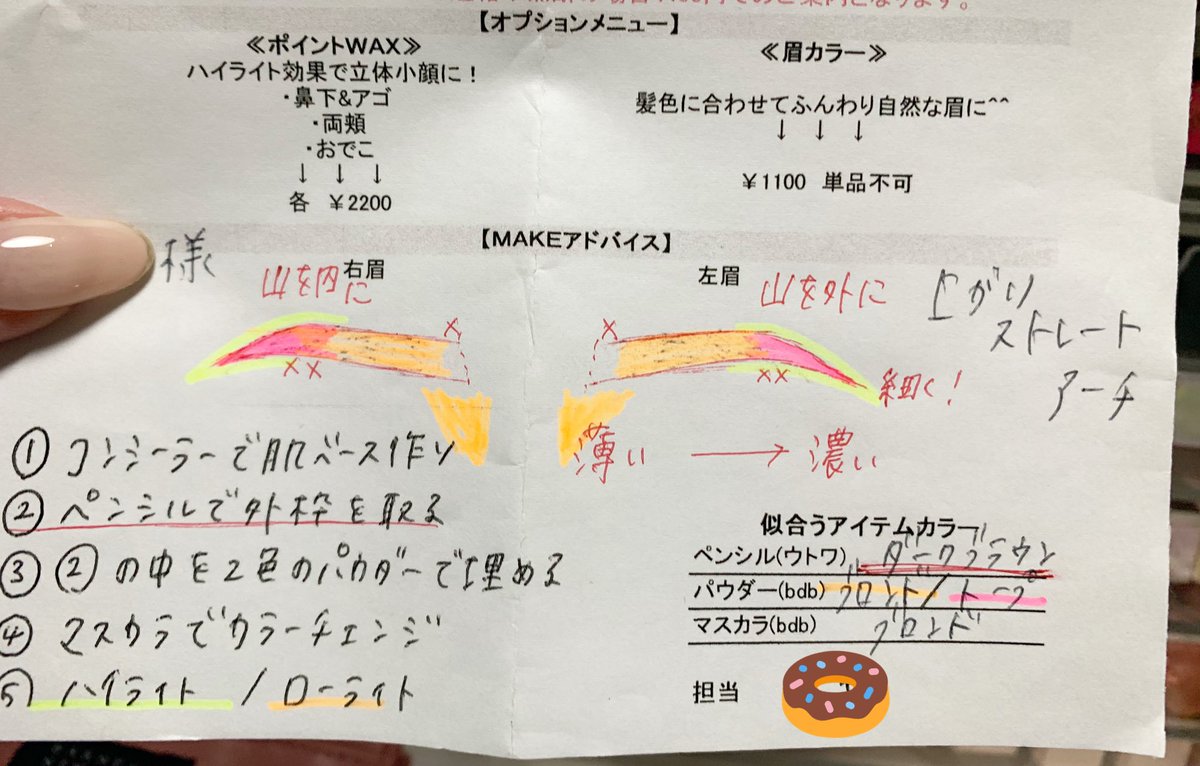 【オプションメニュー】
≪ポイントWAX≫
ハイライト効果で立体小顔に！
・鼻下&アゴ
・両頬
・おでこ
↓ ↓ ↓
各 ￥2200
≪眉カラー≫
髪色に合わせてふんわり自然な眉に^^
↓ ↓ ↓
￥1100 単品不可
【MAKEアドバイス】
様
右眉
山を内に
左眉
山を外に
上がり
ストレート
アーチ
細く！
薄い → 濃い
① コンシーラーで肌ベース作り
② ペンシルで外枠を取る
③ ②の中を2色のパウダーで埋める
④ マスカラでカラーチェンジ
⑤ ハイライト / ローライト
似合うアイテムカラー
ペンシル(ウトワ) ダークブラウン
パウダー(bdb) ブロンド/トープ
マスカラ(bdb) ブロンド
担当